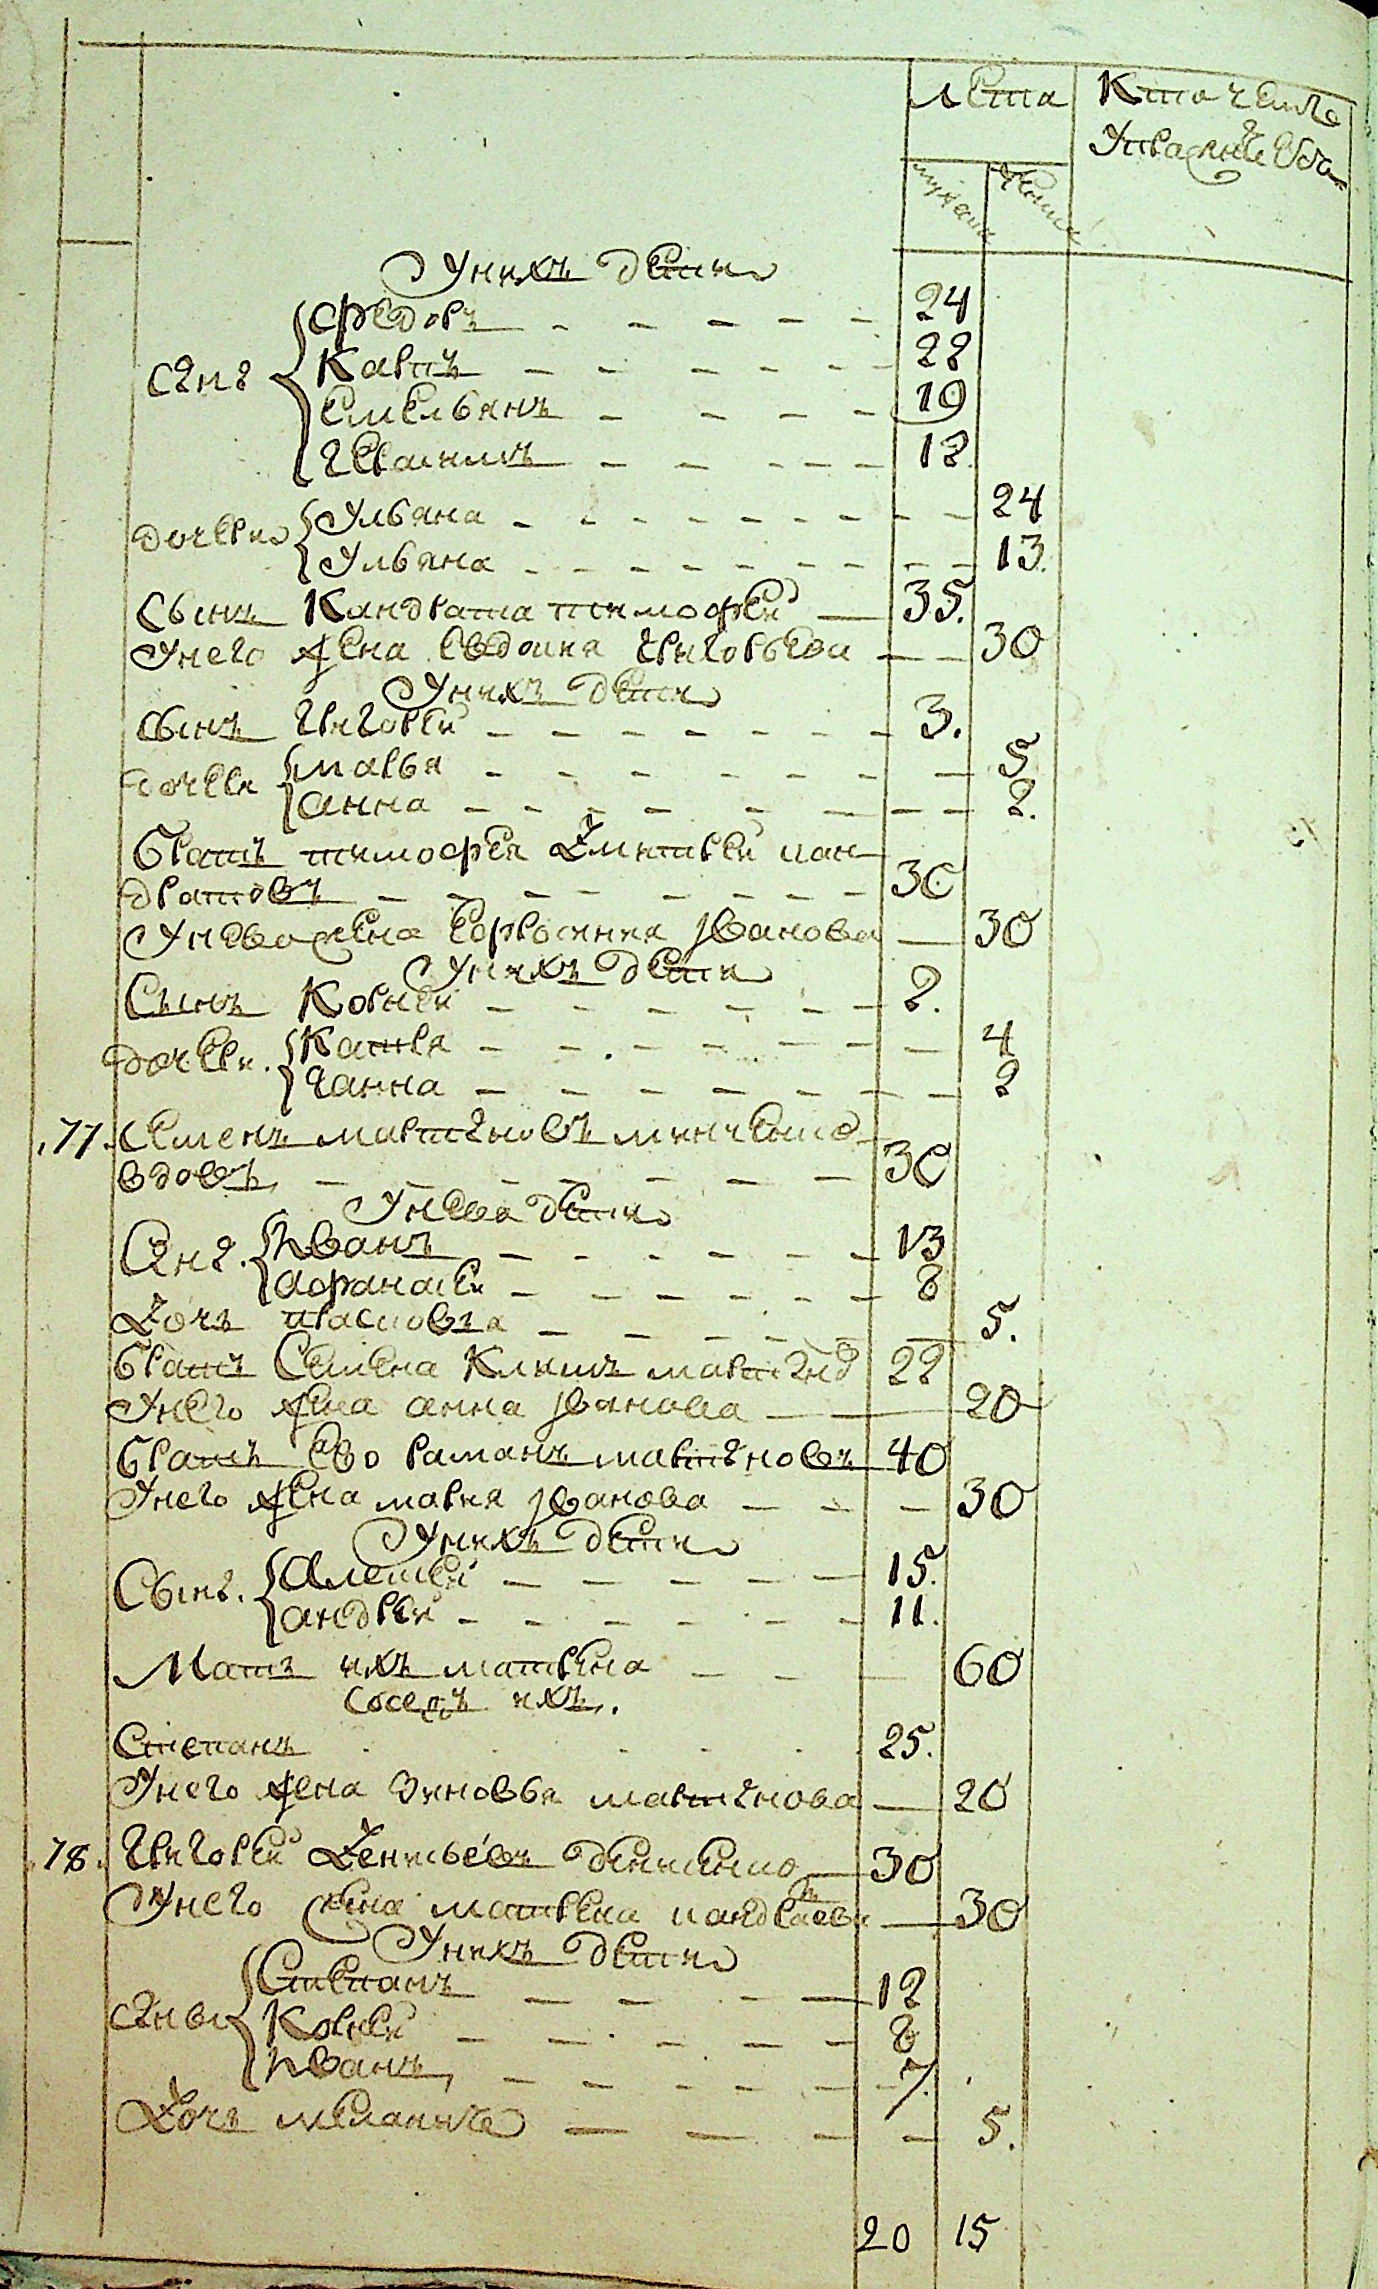 Лета
Кто чемъ
мужеска женска
У нихъ дети
Федоръ 24
Карпъ 22
Сыны
Емельянъ 19
Герасимъ 12
Ульяна 24
дочери
Ульяна 13.
Сынъ Кандрата тимофей 35.
У него жена Евдокия григорьева 30
У нихъ дети
сынъ григорей 3.
марья 5
дочери
анна 2.
братъ тимофея Дмитрей кан
дратовъ 30
У нево жена Ефросиния Иванова 30
У нихъ дети
Сынъ Корней 2.
дочери Катря 4
ганна 2
77. семенъ мартыновъ
вдовъ 30
У нево дети
Сыны Иванъ 13
афанасей 8
Дочь прасковья 5.
братъ Семена Климъ мартыно 22
У него жена анна Иванова 20
братъ ево раманъ мартыновъ 40
У него жена мария Иванова 30
У нихъ дети
Сыны Алексей 15.
андрей 11.
Мать ихъ матрена 60
соседъ ихъ.
Степанъ 25.
У него жена Зиновья мартынова 20
78. Григорей Денисьевъ денисенко 30
У него жена матрена кандратьева 30
У нихъ дети
Степанъ 12
сыны Корней 8
Иванъ 7.
Дочь меланья 5.
20 15